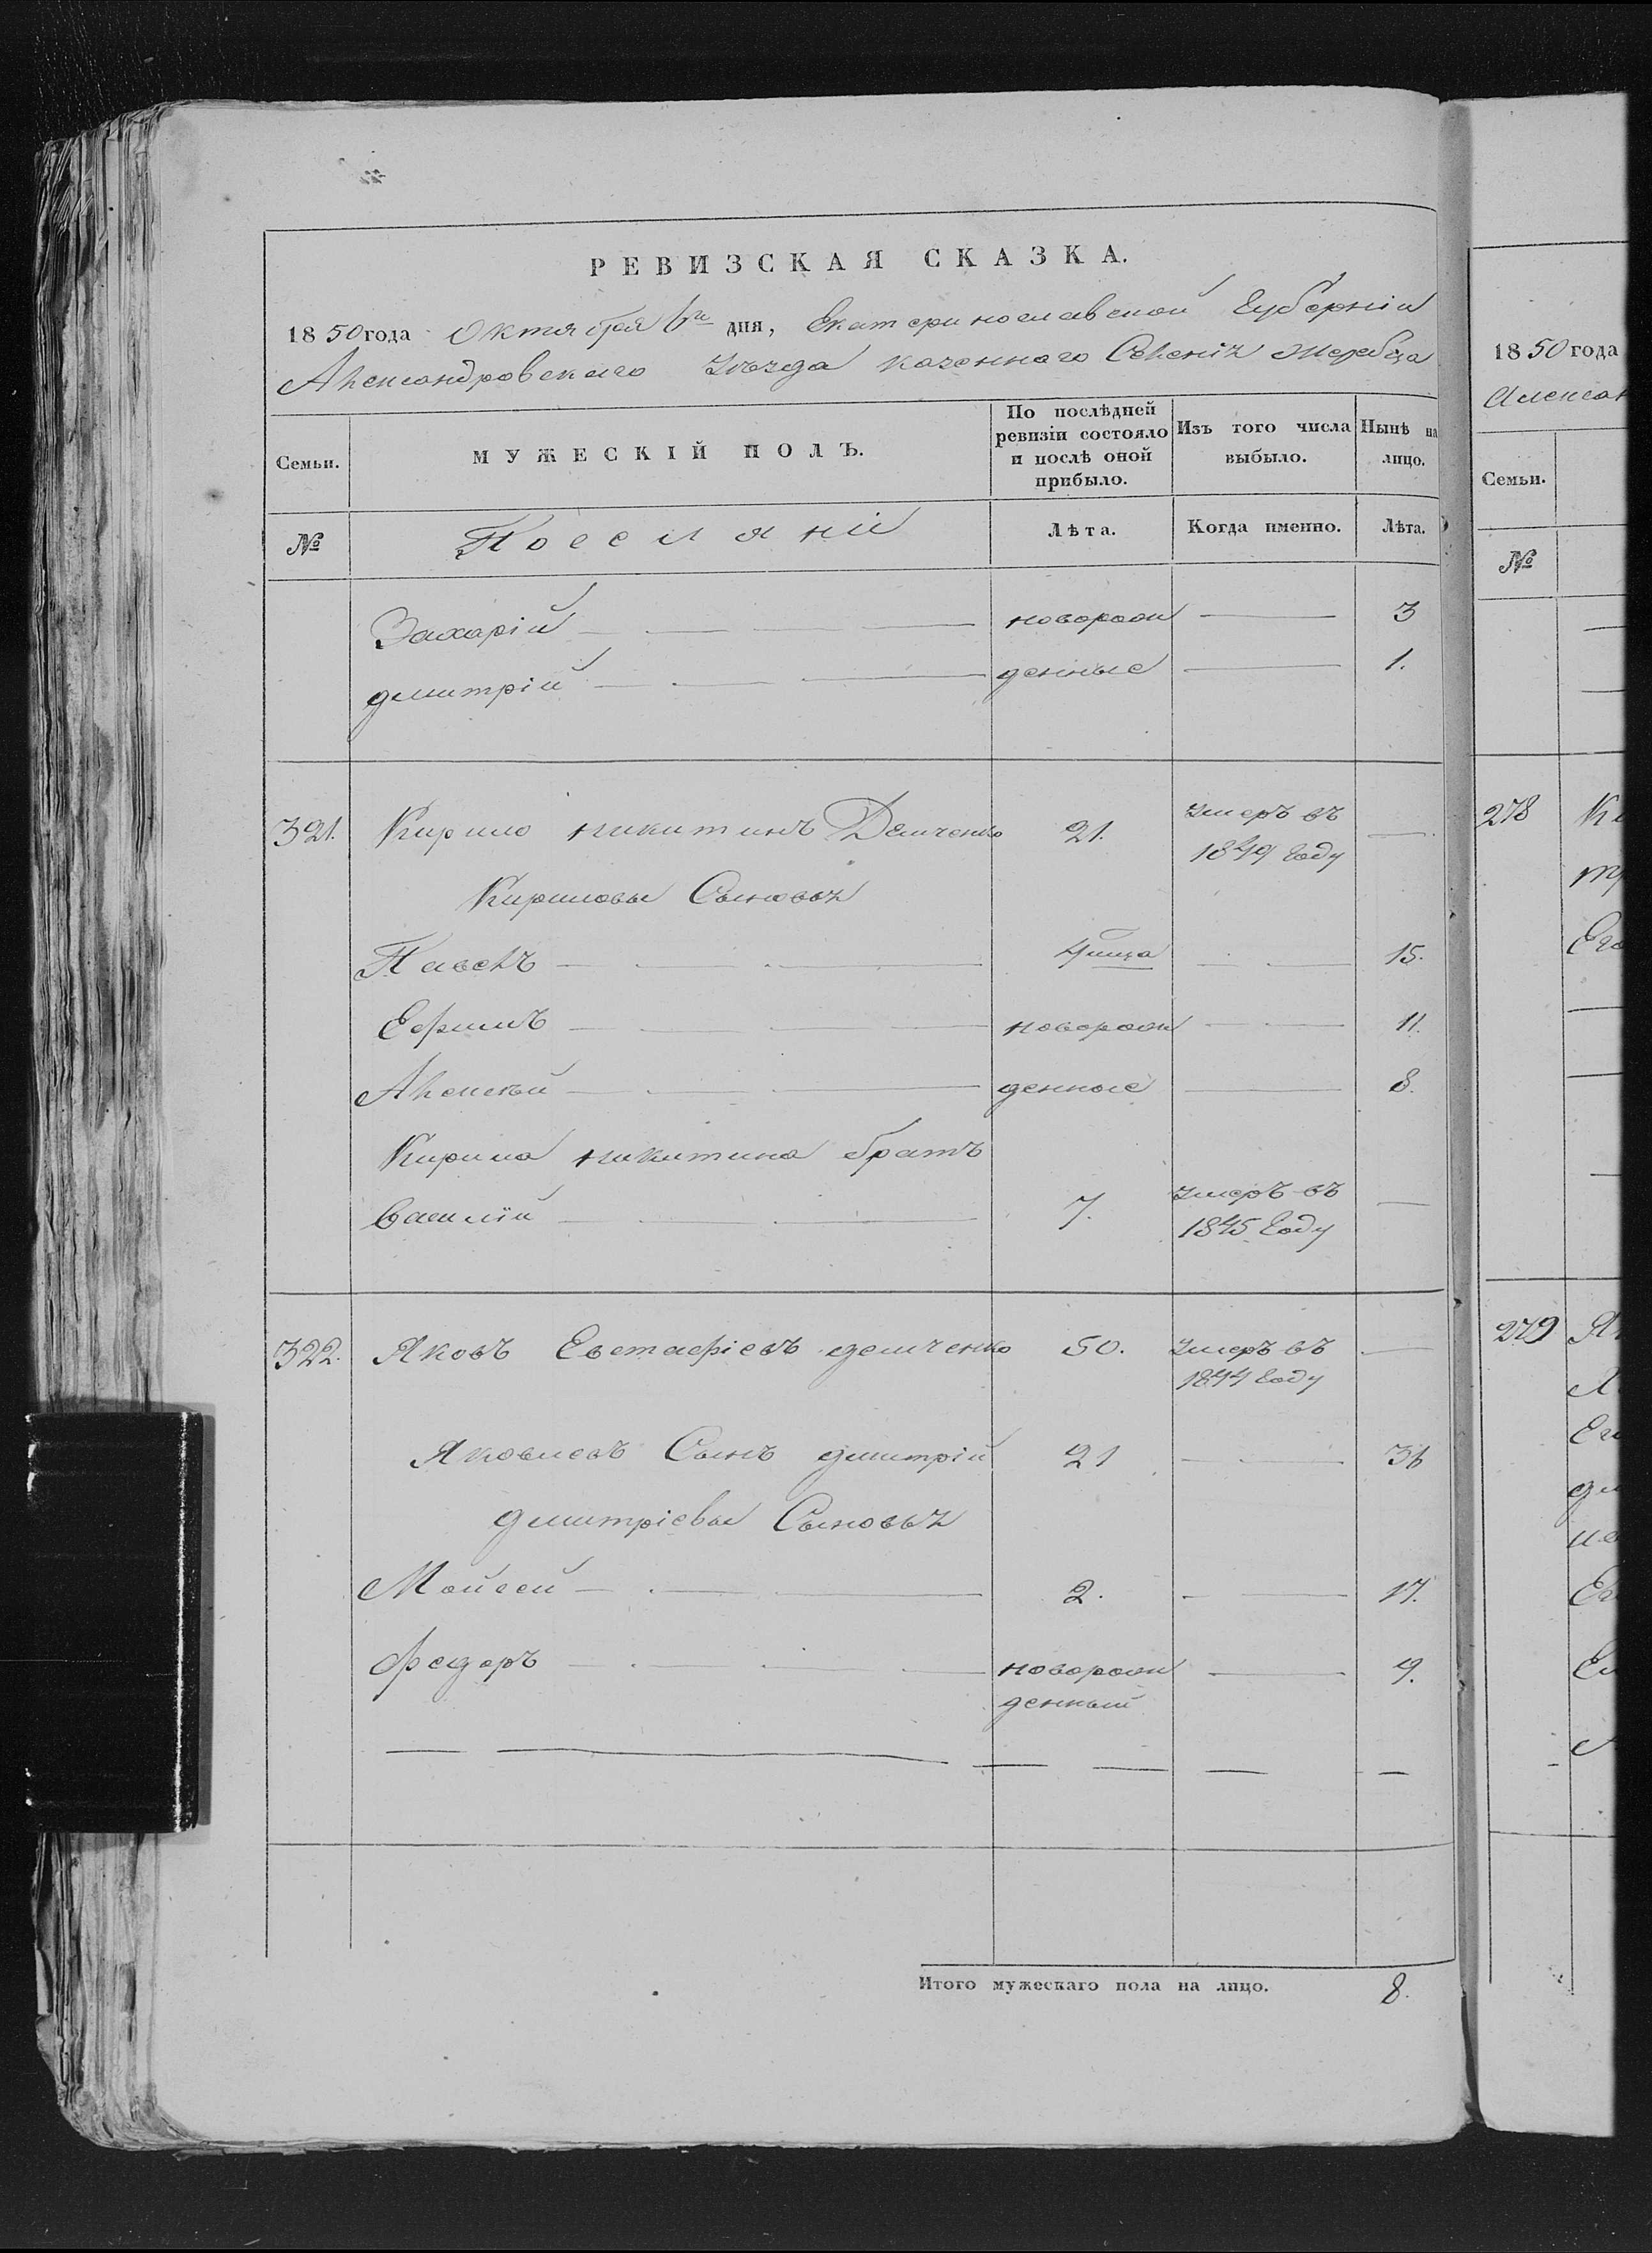 РЕВИЗСКАЯ СКАЗКА.
1850 года Октября 6го дня, Екатеринославской Губерніи
Александровскаго Уѣзда казеннаго Селенія Жеребца
Семьи.
МУЖЕСКІЙ ПОЛЪ.
По послѣдней ревизіи состояло и послѣ оной прибыло.
Изъ того числа выбыло.
Нынѣ на лицо.
№
Лѣта.
Когда именно.
Лѣта.
Захарій новорож 3
дмитрій денные 1.
321. Кирило никитинъ Демченко 21. умеръ въ 1849 Году
Кириловы Сыновья
Павелъ 15.
Ефимъ новорож 11.
Алексѣй денные 8.
Кирила никитина братъ
Василій 7. умеръ въ 1845 Году
322. Яковъ Евстафіевъ демченко 50. умеръ въ 1844 Году
Яковлевъ Сынъ дмитрій 21 36
дмитріевы Сыновья
Мойсей 2. 17.
Федоръ новорож 9.
денный
Итого мужескаго пола на лицо. 8.
1850 года
Алексан
Семьи.
№
278
279